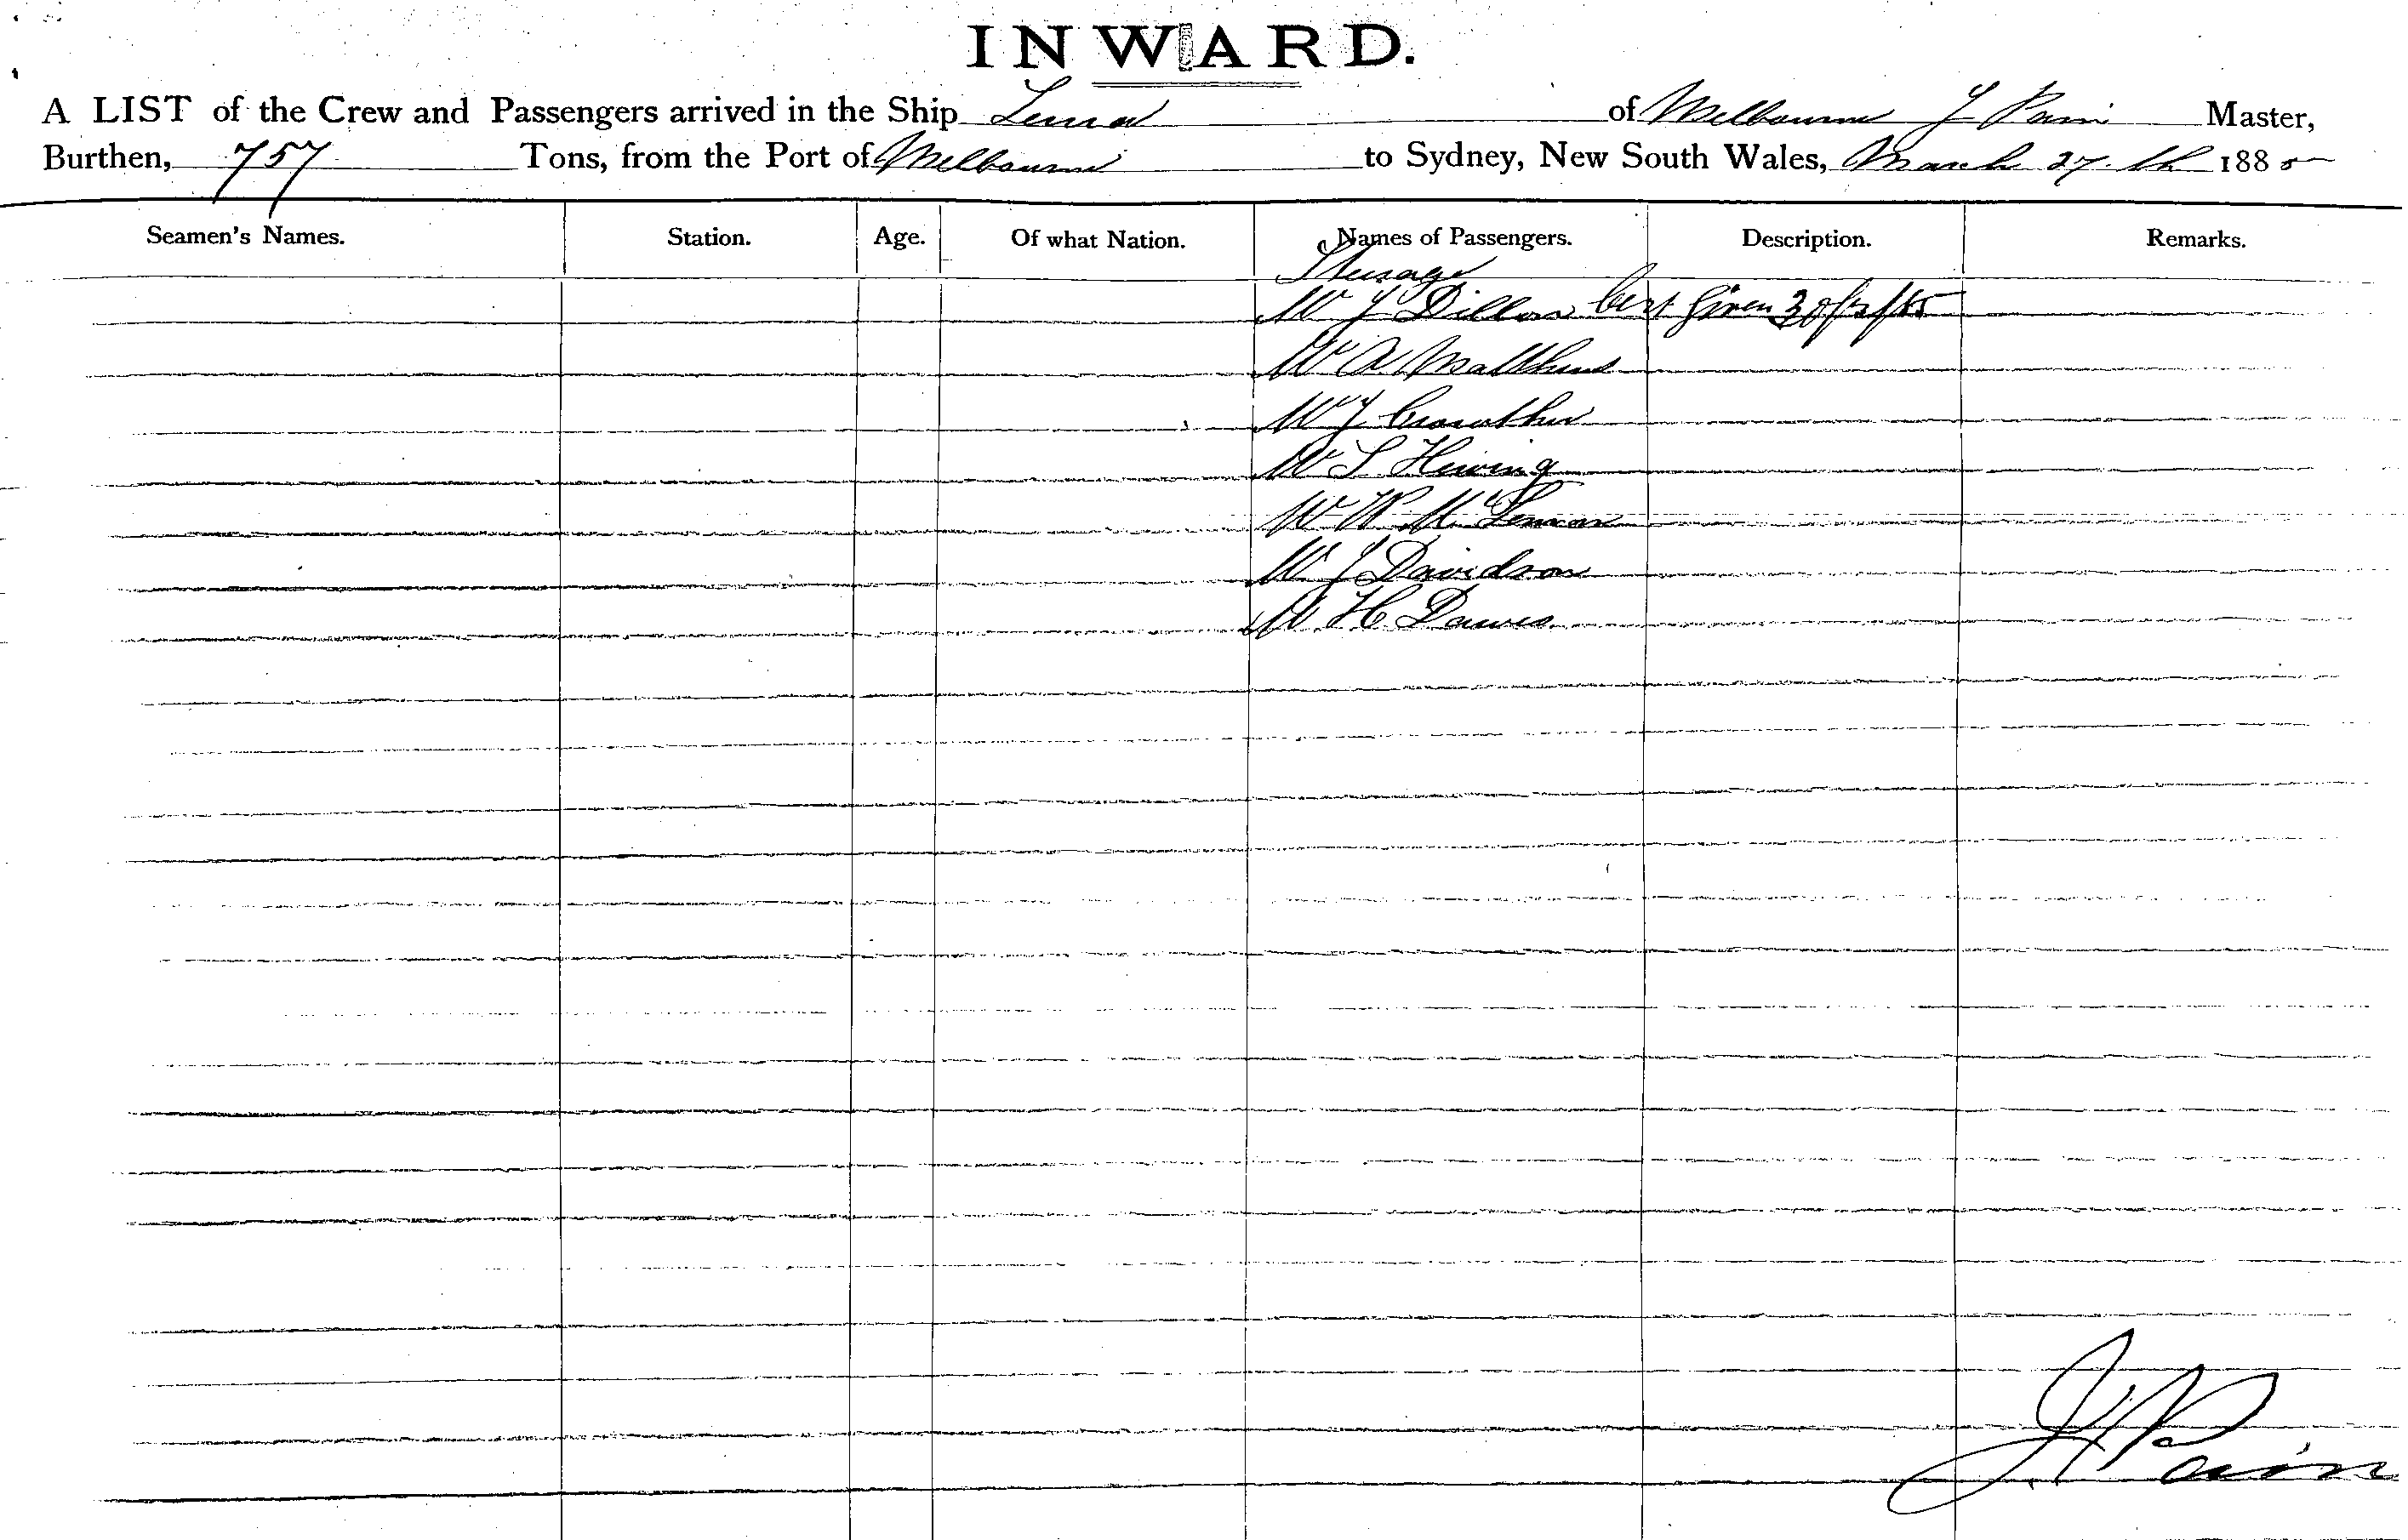 INWARD.
A LIST of the Crew and Passengers arrived in the Ship of Melbourne J Pain Master,
Burthen, 757 Tons, from the Port of Melbourne to Sydney, New South Wales, March 27th 1885
Seamen's Names. Station. Age. Of what Nation. Names of Passengers. Description. Remarks.
Steerage
Mr J Dillon Cert Given 30/3/85
Mr A Matthews
Mr J
Mr S
Mr W McLennan
Mr J Davidson
Mr H Dawes
J Pain